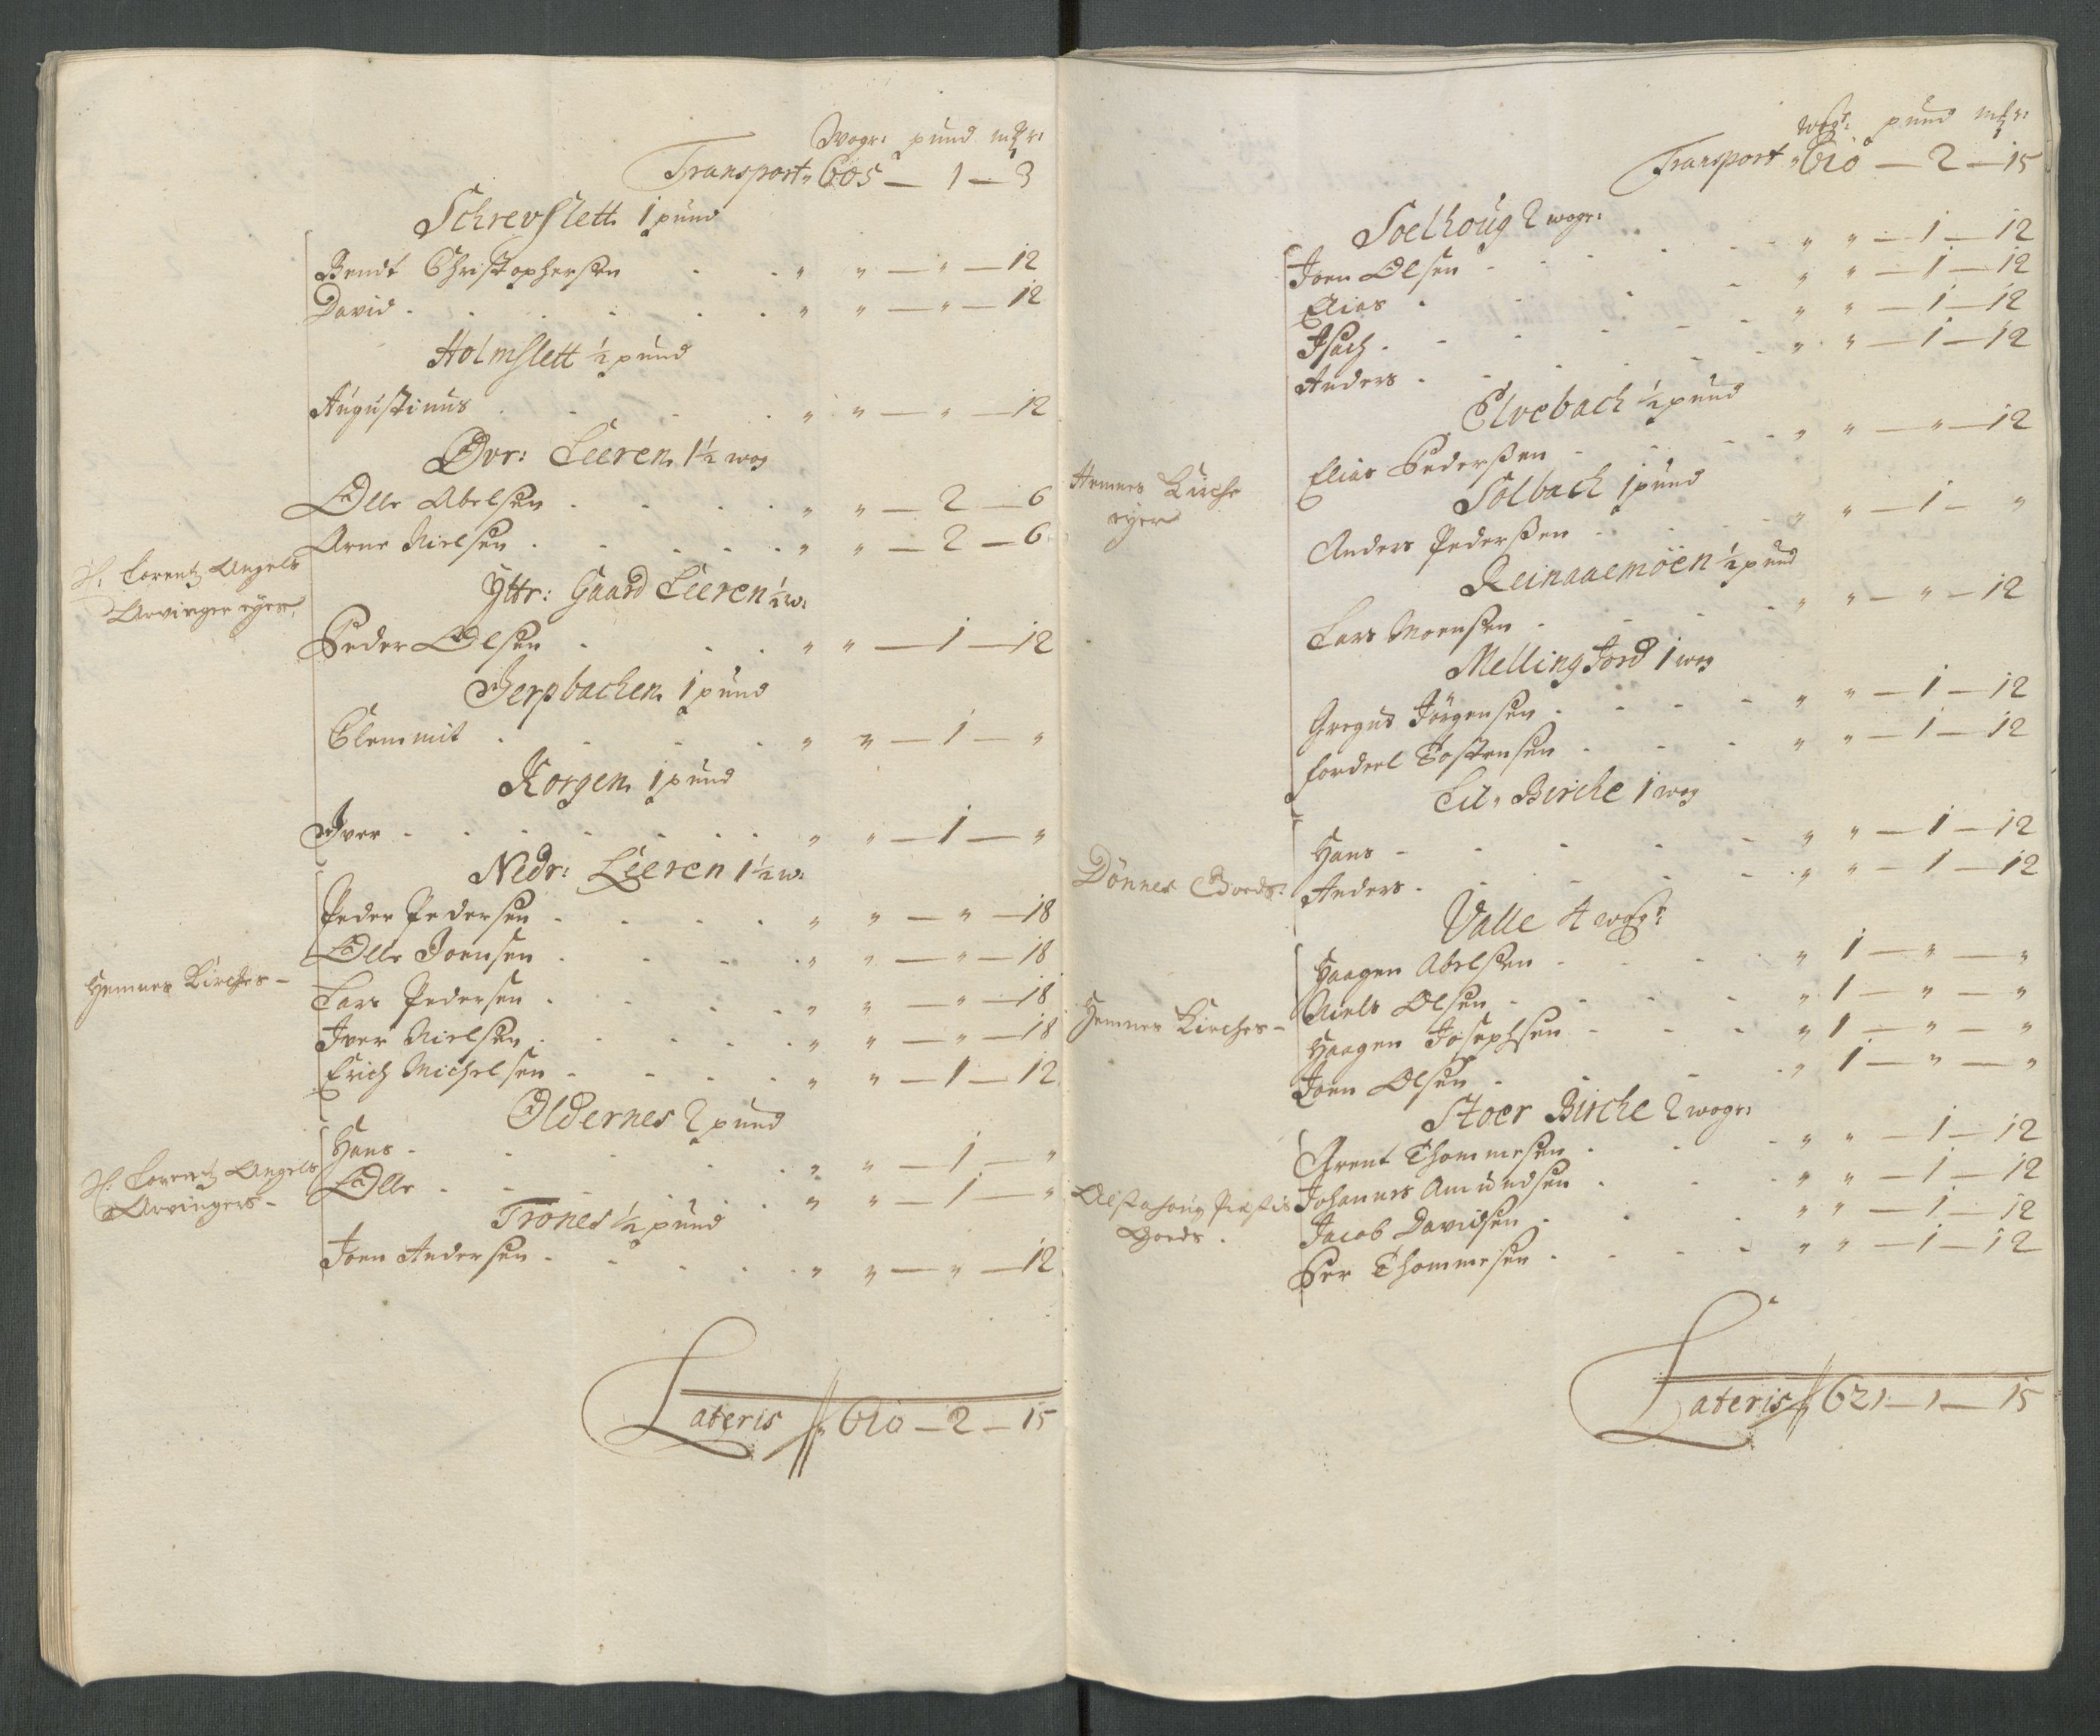 Wogr: pund mkr:
Transport „ 605 — 1 — 3
Schrevslett 1 pund
Bendt Christophersen . . „ „ — „ — 12
David . . . . . . „ „ — „ — 12
Holmslett ½ pund
Augustinus . . . . „ „ — „ — 12
Øvr: Leeren 1½ wog
Olle Abelsen . . . . „ „ — 2 — 6
Arne Nielsen . . . . . „ „ — 2 — 6
H: Lorentz Angels
Arvinger eyer
Yttr: Gaard Leeren ½ w:
Peder Olsen . . . „ „ — 1 — 12
Jerpbachen 1 pund
Clemmit . . . . „ „ — 1 — „
Korgen 1 pund
Iver . . . . . . . „ „ — 1 — „
Nedr: Leeren 1½ w:
Peder Pedersen . . . . „ „ — „ — 18
Olle Joensen . . . . „ „ — „ — 18
Hemnes Kirches —
Lars Pedersen . . . . „ „ — „ — 18
Iver Nielsen . . . . . „ „ — „ — 18
Erich Michelsen . . . . „ „ — 1 — 12
Oldernes 2 pund
Hans . . . . . . „ „ — 1 — „
H: Lorentz Angels
Arvingers —
Olle . . . . . . „ „ — 1 — „
Trones ½ pund
Joen Andersen . . . . . „ „ — „ — 12
Lateris „ 610 — 2 — 15
wogr: pund mkr:
Transport „ 610 — 2 — 15
Soelhoug 2 wogr:
Joen Olsen . . . . „ „ — 1 — 12
Elias . . . . „ „ — 1 — 12
Isach . . . . . „ „ — 1 — 12
Anders . . . . . „ „ — 1 — 12
Elvebach ½ pund
Elias Pederssen . . . . „ „ — „ — 12
Hemnes Kirche
eyer
Solbach 1 pund
Anders Pederssen . . . . „ „ — 1 — „
Reinaaemöen ½ pund
Lars Moensen . . . . „ „ — „ — 12
Melling Jord 1 wog
Gregus Jörgensen . . . . „ „ — 1 — 12
fordeel Tostensen . . . „ „ — 1 — 12
Lil. Birche 1 wog
Hans . . . . . „ „ — 1 — 12
Dönnes Goeds:
Anders . . . . . „ „ — 1 — 12
Valle 4 wogr:
Haagen Abelsen . . . . „ 1 — „ — „
Niels Olsen . . . . „ 1 — „ — „
Hemnes Kirches —
Haagen Josephsen . . . „ 1 — „ — „
Joen Olsen . . . . „ 1 — „ — „
Stoer Birche 2 wogr:
Arent Thommesen . . . „ „ — 1 — 12
Johannes Amundsen . . . „ „ — 1 — 12
Alstahoug Prestis
Goeds .
Jacob Davidsen . . . „ „ — 1 — 12
Per Thommesen . . . . „ „ — 1 — 12
Lateris „ 621 — 1 — 15